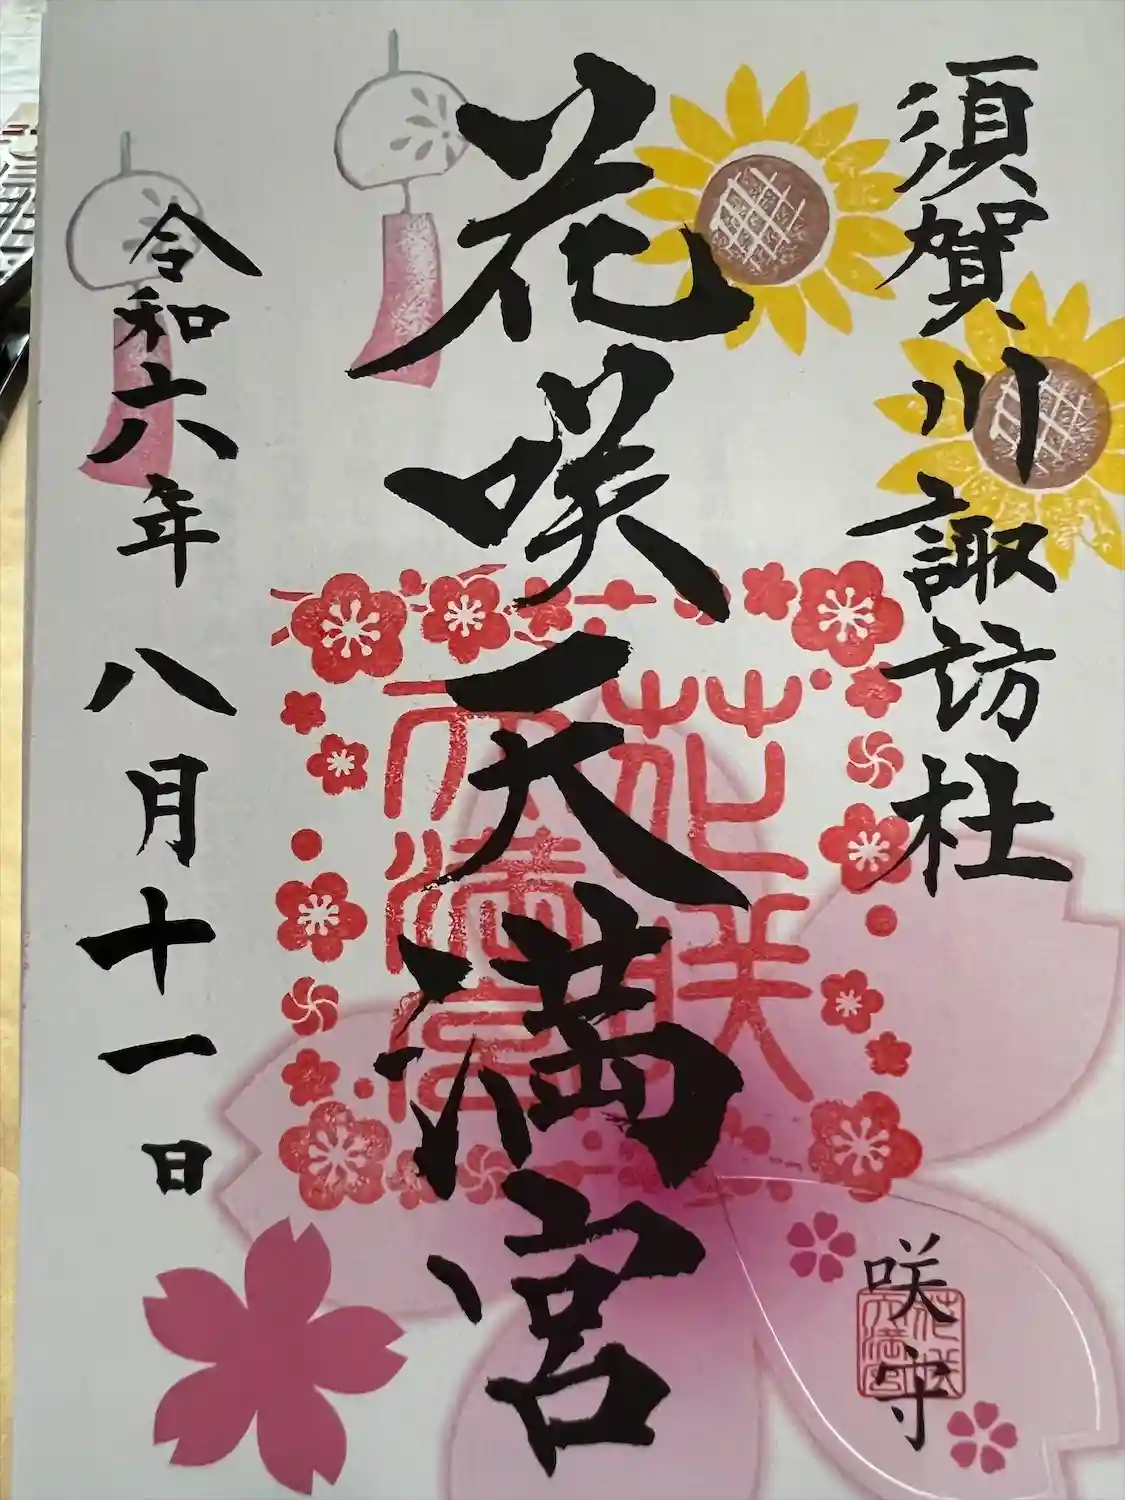 須賀川諏訪社
花咲天満宮
花咲天満宮
令和六年 八月十一日
咲守
花咲天満宮